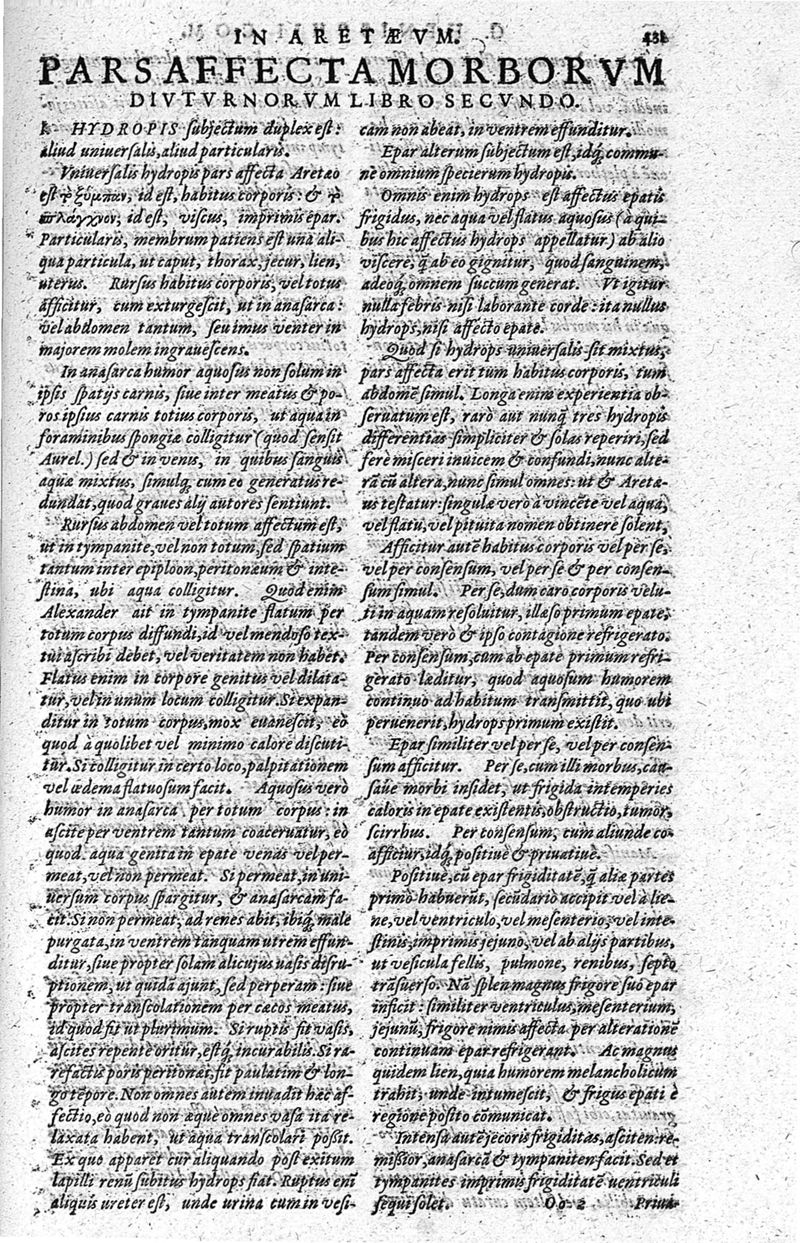 IN ARETÆVM.
431
PARS AFFECTA MORBORVM
DIVTVRNORVM LIBRO SECVNDO.
HYDROPIS ſubjectum duplex eſt:
aliud vniuerſalis, aliud particularis.
Vniuerſalis hydropis pars affecta Aretæo
eſt τὸ ξύμπαν, id eſt, habitus corporis: & τὸ
σπλάγχνον, id eſt, viſcus, imprimis epar.
Particularis, membrum patiens eſt vna ali-
qua particula, ut caput, thorax, jecur, lien,
uterus. Rurſus habitus corporis, vel totus
afficitur, cum exturgeſcit, ut in anaſarca:
vel abdomen tantum, ſeu imus venter in
majorem molem ingraueſcens.
In anaſarca humor aquoſus non ſolum in
ipſis ſpatijs carnis, ſiue inter meatus & po-
ros ipſius carnis totius corporis, ut aqua in
foraminibus ſpongiæ colligitur (quod ſenſit
Aurel.) ſed & in venis, in quibus ſanguis
aquæ mixtus, ſimulq́; cum eo generatus re-
dundat, quod graues alij autores ſentiunt.
Rurſus abdomen vel totum affectum eſt,
ut in tympanite, vel non totum, ſed ſpatium
tantum inter epiploon, peritonæum & inte-
ſtina, ubi aqua colligitur. Quod enim
Alexander ait in tympanite flatum per
totum corpus diffundi, id vel mendoſo tex-
tui aſcribi debet, vel veritatem non habet.
Flatus enim in corpore genitus vel dilata-
tur, vel in unum locum colligitur. Si expan-
ditur in totum corpus, mox euaneſcit, eò
quod à quolibet vel minimo calore diſcuti-
tur. Si colligitur in certo loco, palpitationem
vel œdema flatuoſum facit. Aquoſus verò
humor in anaſarca per totum corpus: in
aſcite per ventrem tantum coaceruatur, eò
quod aqua genita in epate venas vel per-
meat, vel non permeat. Si permeat, in uni-
uerſum corpus ſpargitur, & anaſarcam fa-
cit. Si non permeat, ad renes abit, ibiq́; male
purgata, in ventrem tanquam utrem effun-
ditur, ſiue propter ſolam alicujus vaſis diſru-
ptionem, ut quidā ajunt, ſed perperam: ſiue
propter tranſcolationem per cæcos meatus,
id quod fit ut plurimum. Si ruptis fit vaſis,
aſcites repente oritur, eſtq́; incurabilis. Si ra-
refactis poris peritonæi, fit paulatim & lon-
go tēpore. Non omnes autem inuadit hæc af-
fectio, eò quod non æque omnes vaſa ita re-
laxata habent, ut aqua tranſcolari poſſit.
Ex quo apparet cur aliquando poſt exitum
lapilli renū ſubitus hydrops fiat. Ruptus enī
aliquis ureter eſt, unde urina cum in veſi-
cam non abeat, in ventrem effunditur.
Epar alterum ſubjectum eſt, idq́; commu-
ne omnium ſpecierum hydropis.
Omnis enim hydrops eſt affectus epatis
frigidus, nec aqua vel flatus aquoſus (à qui-
bus hic affectus hydrops appellatur) ab alio
viſcere, q̄ ab eo gignitur, quod ſanguinem,
adeoq́; omnem ſuccum generat. Vt igitur
nulla febris niſi laborante corde: ita nullus
hydrops, niſi affecto epate.
Quod ſi hydrops uniuerſalis ſit mixtus,
pars affecta erit tum habitus corporis, tum
abdomē ſimul. Longa enim experientia ob-
ſeruatum eſt, rarò aut nunq̄ tres hydropis
differentias ſimpliciter & ſolas reperiri, ſed
ferè miſceri inuicem & confundi, nunc alte-
rā cū altera, nunc ſimul omnes: ut & Aretæ-
us teſtatur: ſingulæ verò à vincēte vel aqua,
vel flatu, vel pituita nomen obtinere ſolent,
Afficitur autē habitus corporis vel per ſe,
vel per conſenſum, vel per ſe & per conſen-
ſum ſimul. Per ſe, dum caro corporis velu-
ti in aquam reſoluitur, illæſo primum epate,
tandem vero & ipſo contagione refrigerato.
Per conſenſum, cum ab epate primum refri-
gerato læditur, quod aquoſum humorem
continuo ad habitum tranſmittit, quo ubi
peruenerit, hydrops primum exiſtit.
Epar ſimiliter vel per ſe, vel per conſen-
ſum afficitur. Per ſe, cum illi morbus, cau-
ſaúe morbi inſidet, ut frigida intemperies
caloris in epate exiſtentis, obſtructio, tumor,
ſcirrhus. Per conſenſum, cum aliunde co-
afficiur, idq́; poſitiuè & priuatiuè.
Poſitiuè, cū epar frigiditatē, q̄ aliæ partes
primò habuerūt, ſecūdario accipit vel à lie-
ne, vel ventriculo, vel meſenterio, vel inte-
ſtinis, imprimis jejuno, vel ab alijs partibus,
ut veſicula fellis, pulmone, renibus, ſepto
trāſuerſo. Nā ſplen magnus frigore ſuo epar
inficit: ſimiliter ventriculus, meſenterium,
jejunū, frigore nimis affecta per alterationē
continuam epar refrigerant. Ac magnus
quidem lien, quia humorem melancholicum
trahit, unde intumeſcit, & frigus epati è
regione poſito cōmunicat.
Intenſa autē jecoris frigiditas, aſciten: re-
miſſior, anaſarcā & tympaniten facit. Sed et
tympanites imprimis frigiditatē ventriculi
ſequi ſolet.
Oo 2
Priua-